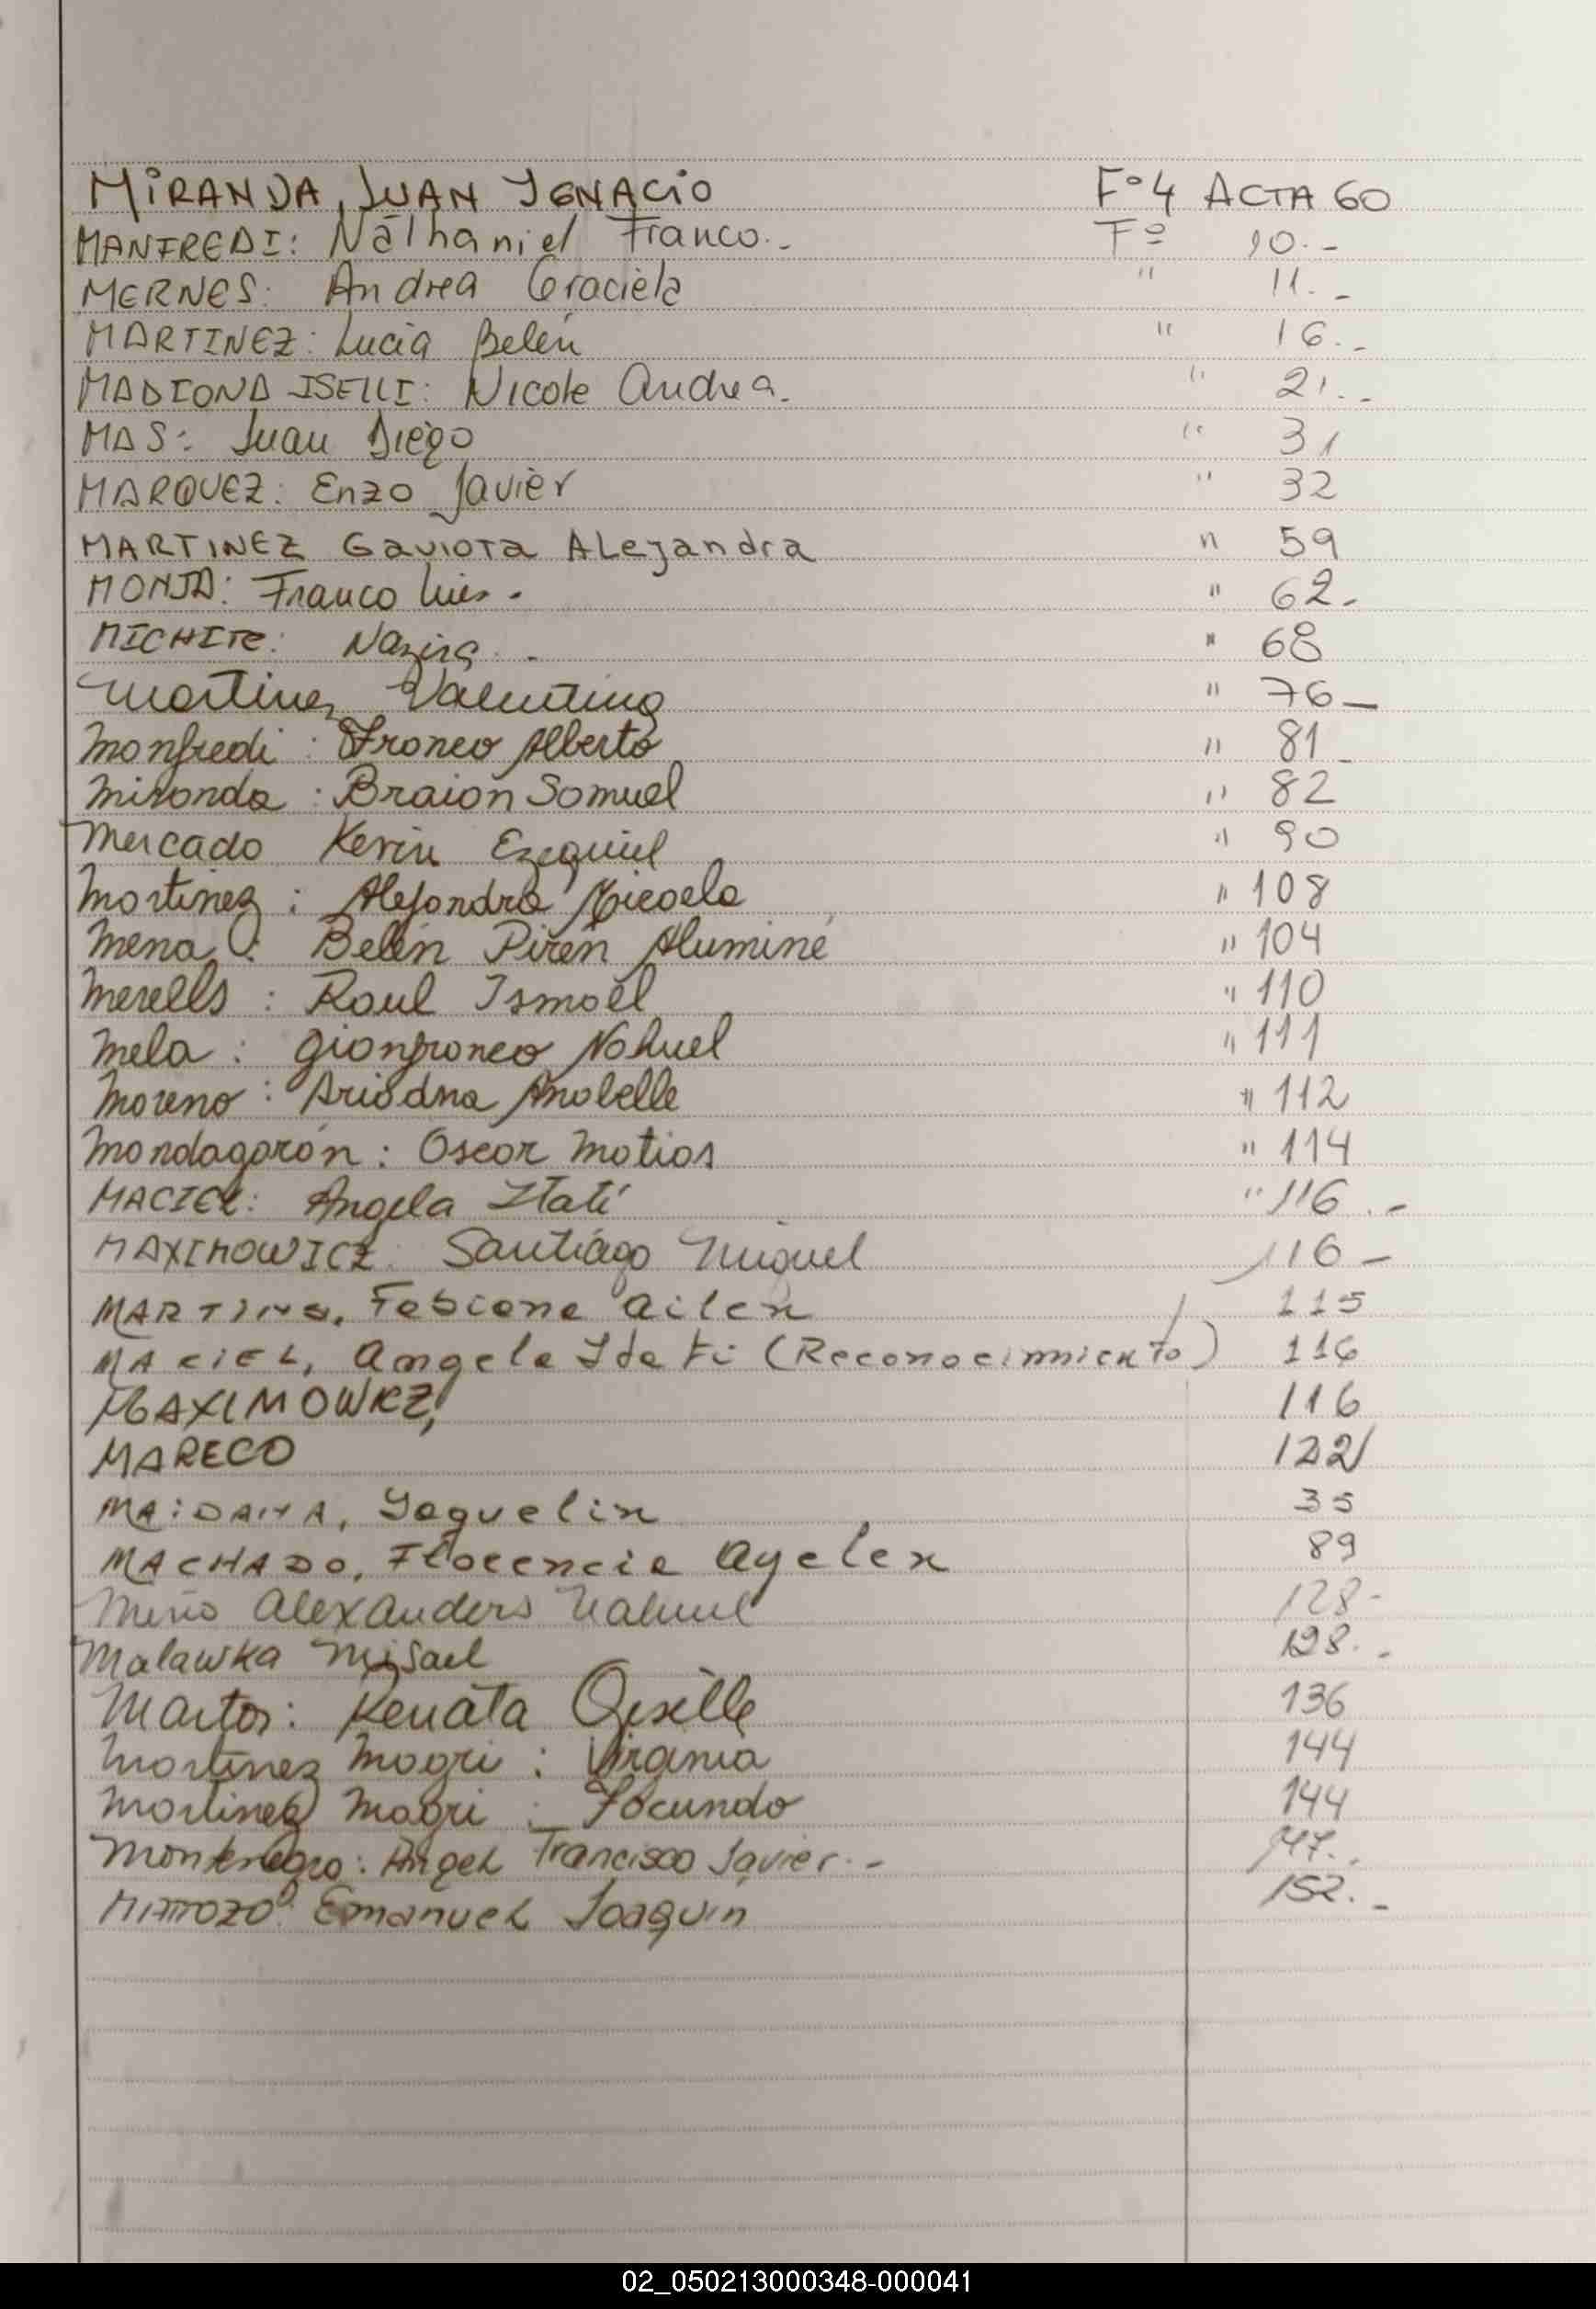 MIRANDA, JUAN IGNACIO Fº 4 ACTA 60
MANFREDI: Nathaniel Franco.- Fº 10.-
MERNES: Andrea Graciela " 11.-
MARTINEZ: Lucia Belén " 16.-
MADIONA ISELLI: Nicole Andrea. " 21.-
MAS: Juan Diego " 31
MARQUEZ: Enzo Javier " 32
MARTINEZ Gaviota Alejandra " 59
MONJA: Franco Luis. " 62.
MICHITE: Nazira.- " 68
Martinez Valentina " 76_
Manfredi: Franco Alberto " 81
Miranda: Braion Samuel " 82
Mercado Kevin Ezequiel " 90
Martinez: Alejandra Micaela " 108
Mena: Belén Pirén Aluminé " 104
Merells: Raul Ismael " 110
Mela: Gianfranco Nahuel " 111
Moreno: Ariadna Anabelle " 112
Mondagarón: Oscar Matias " 114
MACIEL: Angela Itatí " 116.-
MAXIMOWICZ: Santiago Miguel 116-
MARTINS, Fabiana Ailen 115
MACIEL, Angela Itati (Reconocimiento) 116
MAXIMOWICZ, 116
MARECO 122
MAIDANA, Yaquelin 35
MACHADO, Florencia Ayelen 89
Miño Alexanders Nahuel 128-
Malawka Misael 128.-
Martos: Renata Giselle 136
Martinez Magri: Virginia 144
Martinez Magri: Facundo 144
Montenegro: Angel Francisco Javier.- 147..
Emanuel Joaquin 152.-
02_050213000348-000041